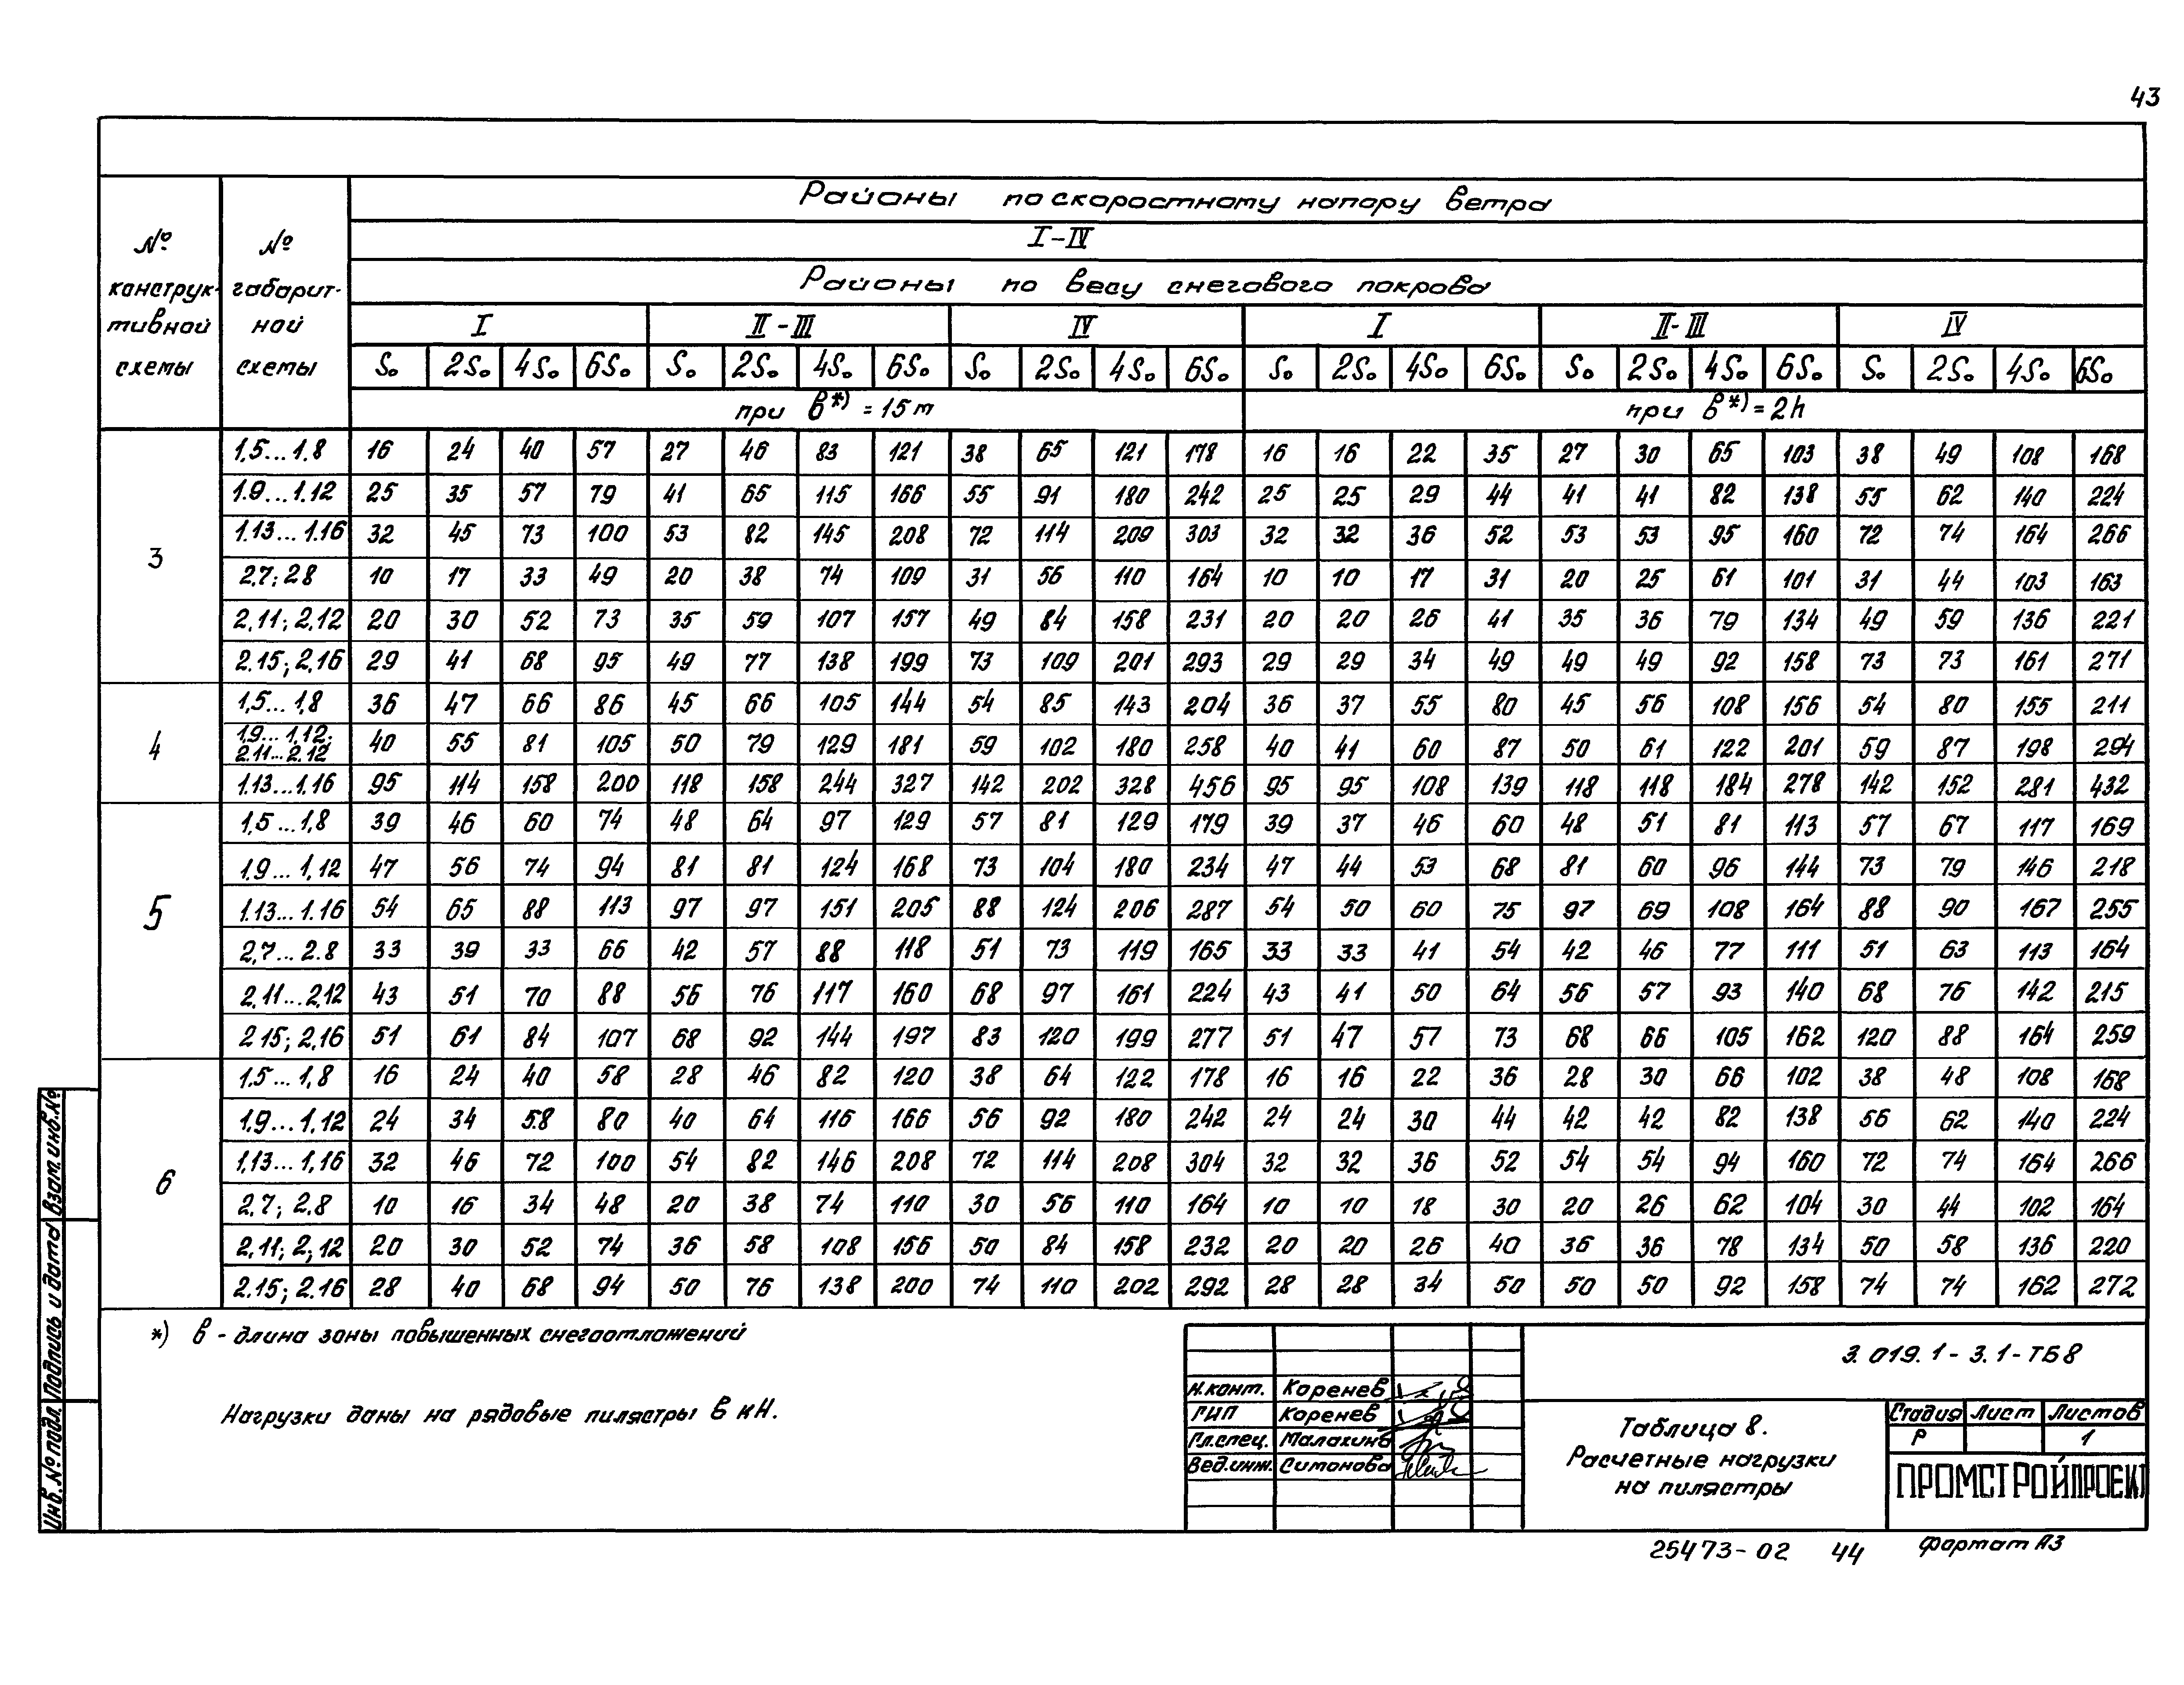 43
Районы по скоростному напору ветра
I-IV
Районы по весу снегового покрова
№ конструк- тивной схемы
№ габарит- ной схемы
I II-III IV I II-III IV
S₀ 2S₀ 4S₀ 6S₀ S₀ 2S₀ 4S₀ 6S₀ S₀ 2S₀ 4S₀ 6S₀ S₀ 2S₀ 4S₀ 6S₀ S₀ 2S₀ 4S₀ 6S₀ S₀ 2S₀ 4S₀ 6S₀
при в*) = 15 m при в*) = 2h
3
1,5...1,8 16 24 40 57 27 46 83 121 38 65 121 178 16 16 22 35 27 30 65 103 38 49 108 168
1.9...1.12 25 35 57 79 41 65 115 166 55 91 180 242 25 25 29 44 41 41 82 138 55 62 140 224
1.13...1.16 32 45 73 100 53 82 145 208 72 114 209 303 32 32 36 52 53 53 95 160 72 74 164 266
2,7; 2 8 10 17 33 49 20 38 74 109 31 56 110 164 10 10 17 31 20 25 61 101 31 44 103 163
2.11; 2,12 20 30 52 73 35 59 107 157 49 84 158 231 20 20 26 41 35 36 79 134 49 59 136 221
2.15; 2,16 29 41 68 95 49 77 138 199 73 109 201 293 29 29 34 49 49 49 92 158 73 73 161 271
4
1,5...1,8 36 47 66 86 45 66 105 144 54 85 143 204 36 37 55 80 45 56 108 156 54 80 155 211
1,9...1,12; 2.11...2.12 40 55 81 105 50 79 129 181 59 102 180 258 40 41 60 87 50 61 122 201 59 87 198 294
1.13...1.16 95 114 158 200 118 158 244 327 142 202 328 456 95 95 108 139 118 118 184 278 142 152 281 432
5
1,5...1,8 39 46 60 74 48 64 97 129 57 81 129 179 39 37 46 60 48 51 81 113 57 67 117 169
1,9...1,12 47 56 74 94 81 81 124 168 73 104 180 234 47 44 53 68 81 60 96 144 73 79 146 218
1.13...1.16 54 65 88 113 97 97 151 205 88 124 206 287 54 50 60 75 97 69 108 164 88 90 167 255
2,7...2.8 33 39 33 66 42 57 88 118 51 73 119 165 33 33 41 54 42 46 77 111 51 63 113 164
2,11...2,12 43 51 70 88 56 76 117 160 68 97 161 224 43 41 50 64 56 57 93 140 68 76 142 215
2 15; 2,16 51 61 84 107 68 92 144 197 83 120 199 277 51 47 57 73 68 66 105 162 120 88 164 259
6
1.5...1,8 16 24 40 58 28 46 82 120 38 64 122 178 16 16 22 36 28 30 66 102 38 48 108 168
1,9...1,12 24 34 58 80 40 64 116 166 56 92 180 242 24 24 30 44 42 42 82 138 56 62 140 224
1,13...1,16 32 46 72 100 54 82 146 208 72 114 208 304 32 32 36 52 54 54 94 160 72 74 164 266
2.7; 2.8 10 16 34 48 20 38 74 110 30 56 110 164 10 10 18 30 20 26 62 104 30 44 102 164
2,11; 2,12 20 30 52 74 36 58 108 156 50 84 158 232 20 20 26 40 36 36 78 134 50 58 136 220
2.15; 2.16 28 40 68 94 50 76 138 200 74 110 202 292 28 28 34 50 50 50 92 158 74 74 162 272
*) в - длина зоны повышенных снегоотложений
Нагрузки даны на рядовые пилястры в кН.
Взам. инв.№
Подпись и дата
Инв. № подл.
Н.конт. Коренев
ГИП Коренев
Гл.спец. Малахина
Вед.инж. Симонова
3.019.1-3.1-ТБ8
Таблица 8.
Расчетные нагрузки
на пилястры
Стадия Лист Листов
Р 1
ПРОМСТРОЙПРОЕКТ
25473-02 44 формат А3